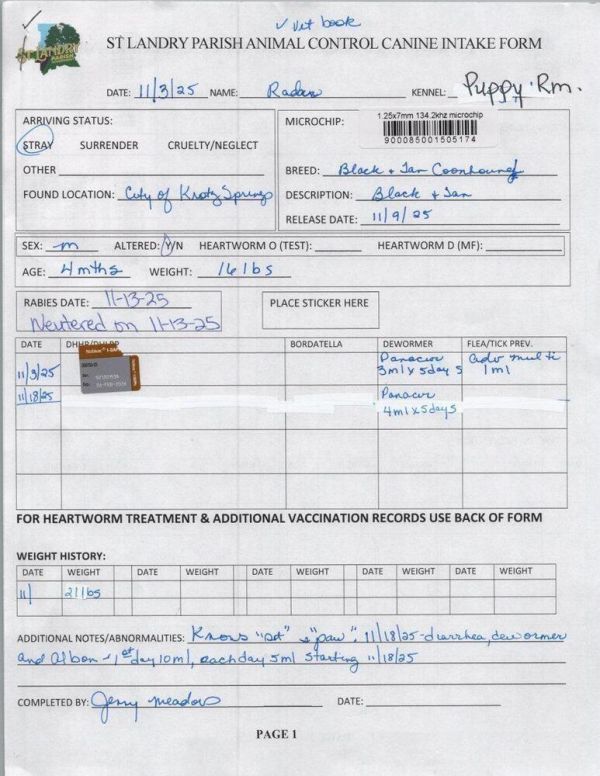 ✓ vet book
ST LANDRY PARISH
ST LANDRY PARISH ANIMAL CONTROL CANINE INTAKE FORM
DATE: 11/3/25 NAME: Radar KENNEL: Puppy Rm.
ARRIVING STATUS:
STRAY SURRENDER CRUELTY/NEGLECT
OTHER
FOUND LOCATION: City of Krotz Springs
MICROCHIP: 1.25x7mm 134.2khz microchip
900085001505174
BREED: Black & Tan Coonhound
DESCRIPTION: Black & Tan
RELEASE DATE: 11/9/25
SEX: m ALTERED: Y/N HEARTWORM O (TEST): HEARTWORM D (MF):
AGE: 4 mths WEIGHT: 16 lbs
RABIES DATE: 11-13-25
Neutered on 11-13-25
PLACE STICKER HERE
DATE DHHP/DHLPP BORDATELLA DEWORMER FLEA/TICK PREV.
11/3/25 Panacur 3ml x 5days adv multi 1ml
11/18/25 Panacur
4ml x 5days
FOR HEARTWORM TREATMENT & ADDITIONAL VACCINATION RECORDS USE BACK OF FORM
WEIGHT HISTORY:
DATE WEIGHT DATE WEIGHT DATE WEIGHT DATE WEIGHT DATE WEIGHT
11/ 21lbs
ADDITIONAL NOTES/ABNORMALITIES: Knows "sit" & "paw". 11/18/25-diarrhea, dewormer
and Albon - 1st day 10ml, each day 5ml starting 11/18/25
COMPLETED BY: Jerry Meadows DATE:
PAGE 1